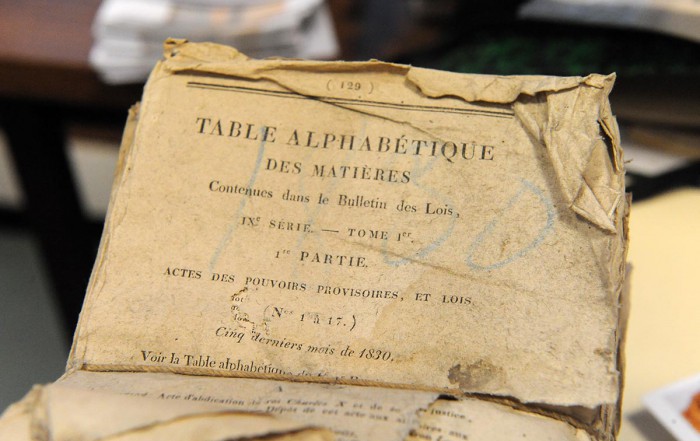 ( 129 )
TABLE ALPHABÉTIQUE
DES MATIÈRES
Contenues dans le Bulletin des Lois,
IXe SÉRIE. — TOME 1er.
1re PARTIE.
ACTES DES POUVOIRS PROVISOIRES, ET LOIS
(Nos 1 à 17.)
Cinq derniers mois de 1830,
Voir la Table alphabétique
A
Acte d'abdication du roi Charles X et de
justice,
Dépôt de cet acte aux archives aux